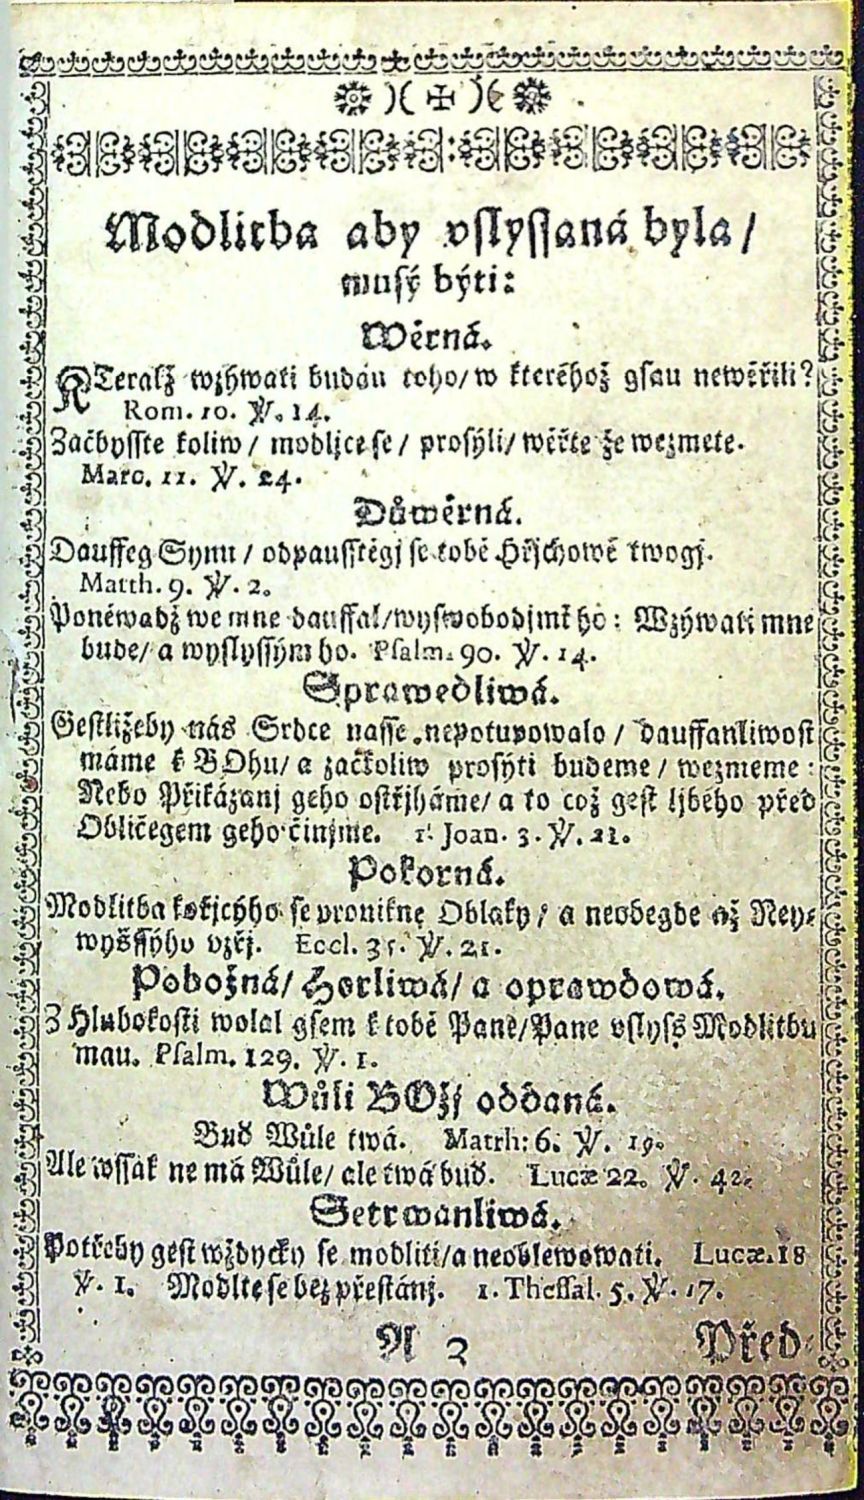 Modlitba aby vslyssaná byla /
musý býti:
Wěrná.
KTeralž wzýwati budau toho/ w kteréhož gsau newěřili?
Rom. 10. ℣. 14.
Začbysste koliw / modljce se / prosýli/ wěřte že wezmete.
Marc. 11. ℣. 24.
Důwěrná.
Dauffeg Synu / odpausstěgj se tobě Hřjchowé twogj.
Matth. 9. ℣. 2.
Poněwadž we mne dauffal/wyswobodjmť ho: Wzýwati mne
bude/ a wyslyssým ho. Psalm. 90. ℣. 14.
Sprawedliwá.
Gestližeby nás Srdce nasse nepotupowalo / dauffanliwost
máme k BOhu/ a začkoliw prosyti budeme / wezmeme:
Nebo Přikázanj geho ostřjháme/ a to což gest ljbého před
Obličegem geho činjme. 1. Joan. 3. ℣. 21.
Pokorná.
Modlitba kořjcýho se pronikne Oblaky / a neobegde až Ney-
wyšssýho vzřj. Eccl. 35. ℣. 21.
Pobožná/ Horliwá/ a oprawdowá.
Z Hlubokosti wolal gsem k tobě Pane/Pane vslyss Modlitbu
mau. Psalm. 129. ℣. 1.
Wůli BOžj oddaná.
Buď Wůle twá. Matth: 6. ℣. 19.
Ale wssak ne má Wůle/ ale twá buď. Lucæ 22. ℣. 42.
Setrwanliwá.
Potřeby gest wždycky se modliti/a neoblewowati. Lucæ. 18
℣. 1. Modlte se bez přestánj. 1. Thessal. 5. ℣. 17.
A 2 Před